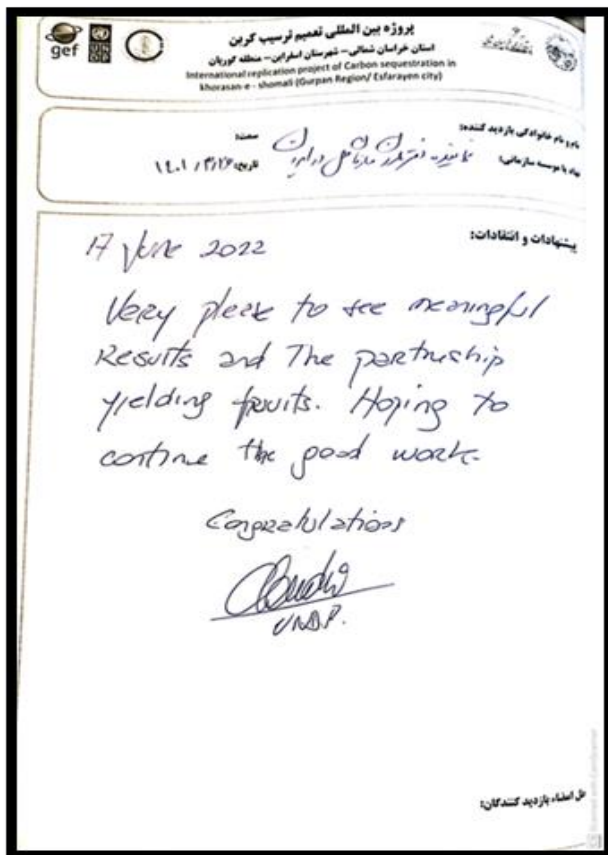 gef
پروژه بین المللی تعمیم ترسیب کربن
استان خراسان شمالی– شهرستان اسفراین– منطقه گورپان
International replication project of Carbon sequestration in
khorasan-e - shomali (Gurpan Region/ Esfarayen city)
نام و نام خانوادگی بازدید کننده:
سمت:
نهاد یا موسسه سازمانی: نماینده دفتر عمران ملل در ایران
تاریخ: ۱۴۰۱/۳/۲۶
پیشنهادات و انتقادات:
17 June 2022
Very please to see meaningful
Results and The partnership
yielding fruits. Hoping to
continue the good work.
Congratulations
UNDP.
محل امضاء بازدید کنندگان:
Scanned with CamScanner